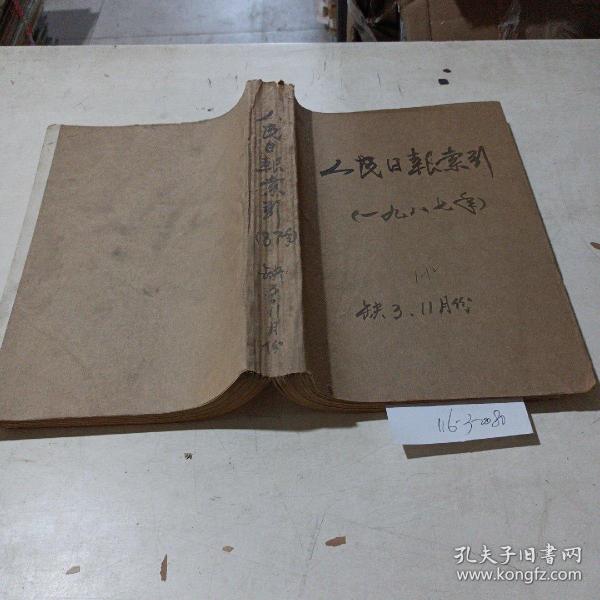 人民日報索引
(一九八七年)
缺3、11月份
人民日報索引
(87年)
缺3、11月份
孔夫子旧书网
www.kongfz.com